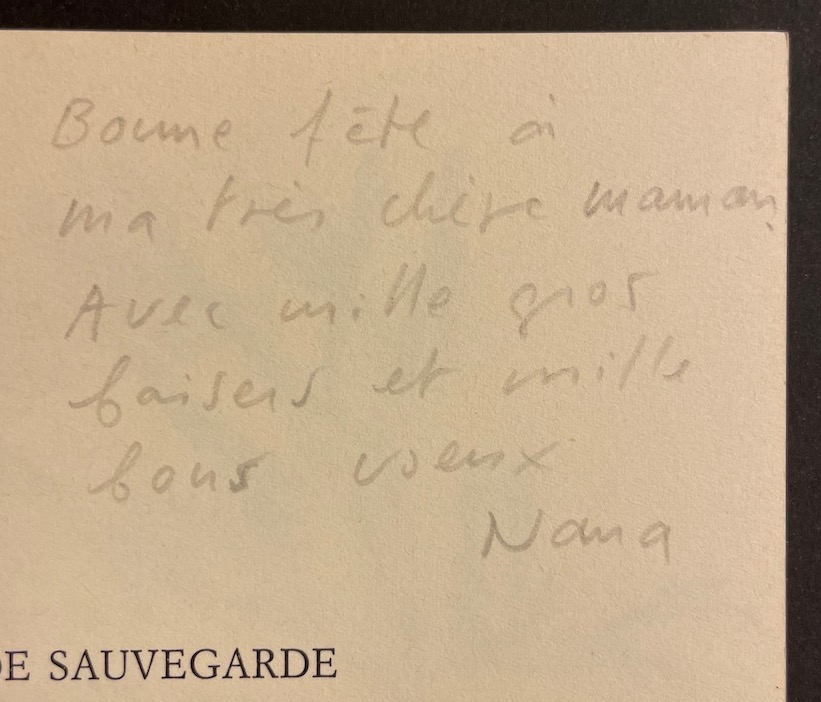 Bonne fête à
ma très chère maman
Avec mille gros
baisers et mille
bons voeux
Nana
DE SAUVEGARDE